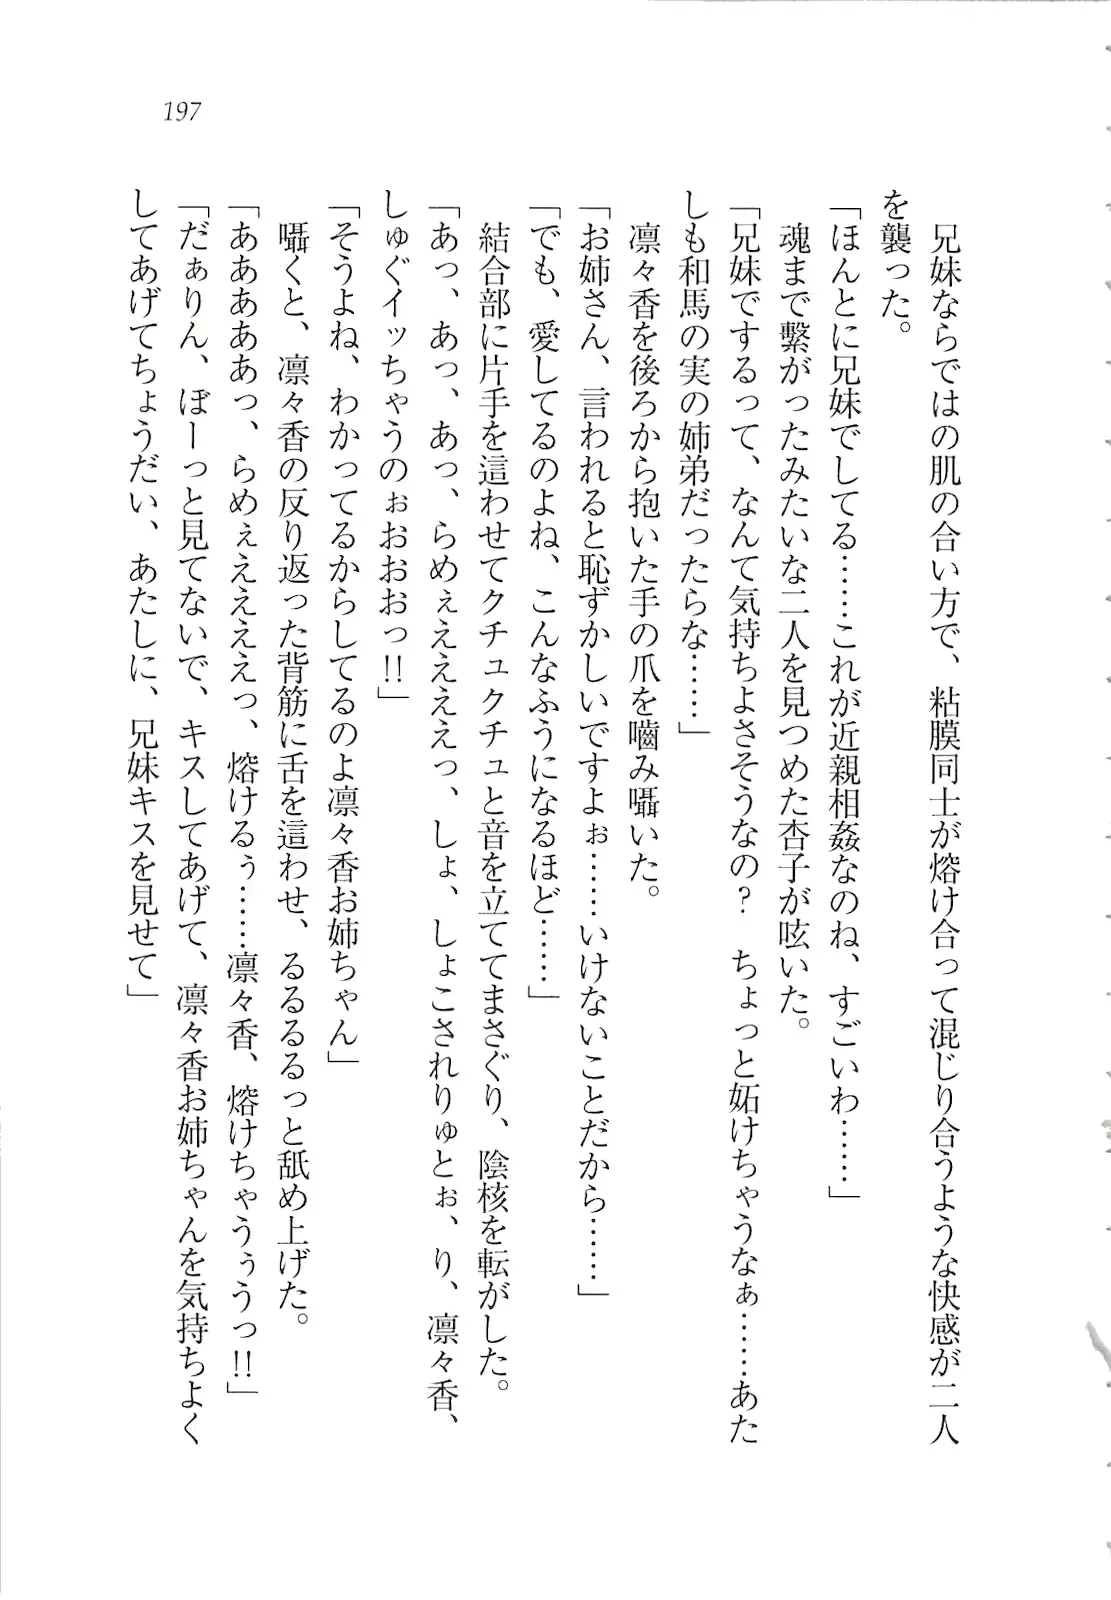 197
兄妹ならではの肌の合い方で、粘膜同士が熔け合って混じり合うような快感が二人
を襲った。
「ほんとに兄妹でしてる……これが近親相姦なのね、すごいわ……」
魂まで繋がったみたいな二人を見つめた杏子が呟いた。
「兄妹でするって、なんて気持ちよさそうなの？　ちょっと妬けちゃうなぁ……あた
しも和馬の実の姉弟だったらな……」
凛々香を後ろから抱いた手の爪を噛み囁いた。
「お姉さん、言われると恥ずかしいですよぉ……いけないことだから……」
「でも、愛してるのよね、こんなふうになるほど……」
結合部に片手を這わせてクチュクチュと音を立ててまさぐり、陰核を転がした。
「あっ、あっ、あっ、らめぇえええっ、しょ、しょこされりゅとぉ、り、凛々香、
しゅぐイッちゃうのぉおおおっ!!」
「そうよね、わかってるからしてるのよ凛々香お姉ちゃん」
囁くと、凛々香の反り返った背筋に舌を這わせ、るるるるっと舐め上げた。
「ああああああっ、らめぇええええっ、熔けるぅ……凛々香、熔けちゃうぅうっ!!」
「だぁりん、ぼーっと見てないで、キスしてあげて、凛々香お姉ちゃんを気持ちよく
してあげてちょうだい、あたしに、兄妹キスを見せて」